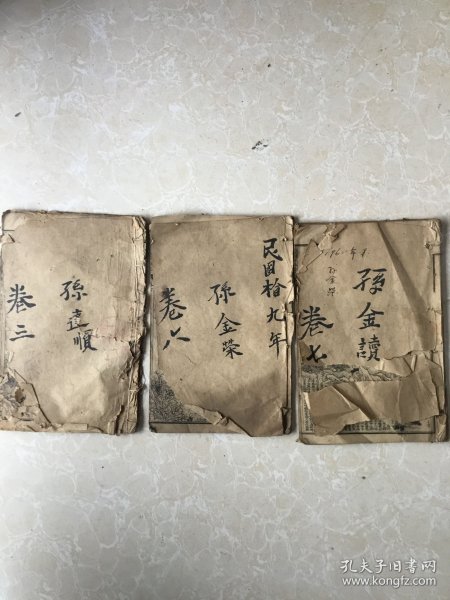 卷三
孫達順
民国拾九年
孫金榮
卷八
孫金讀
孫金榮
卷七
孔夫子旧书网
www.kongfz.com